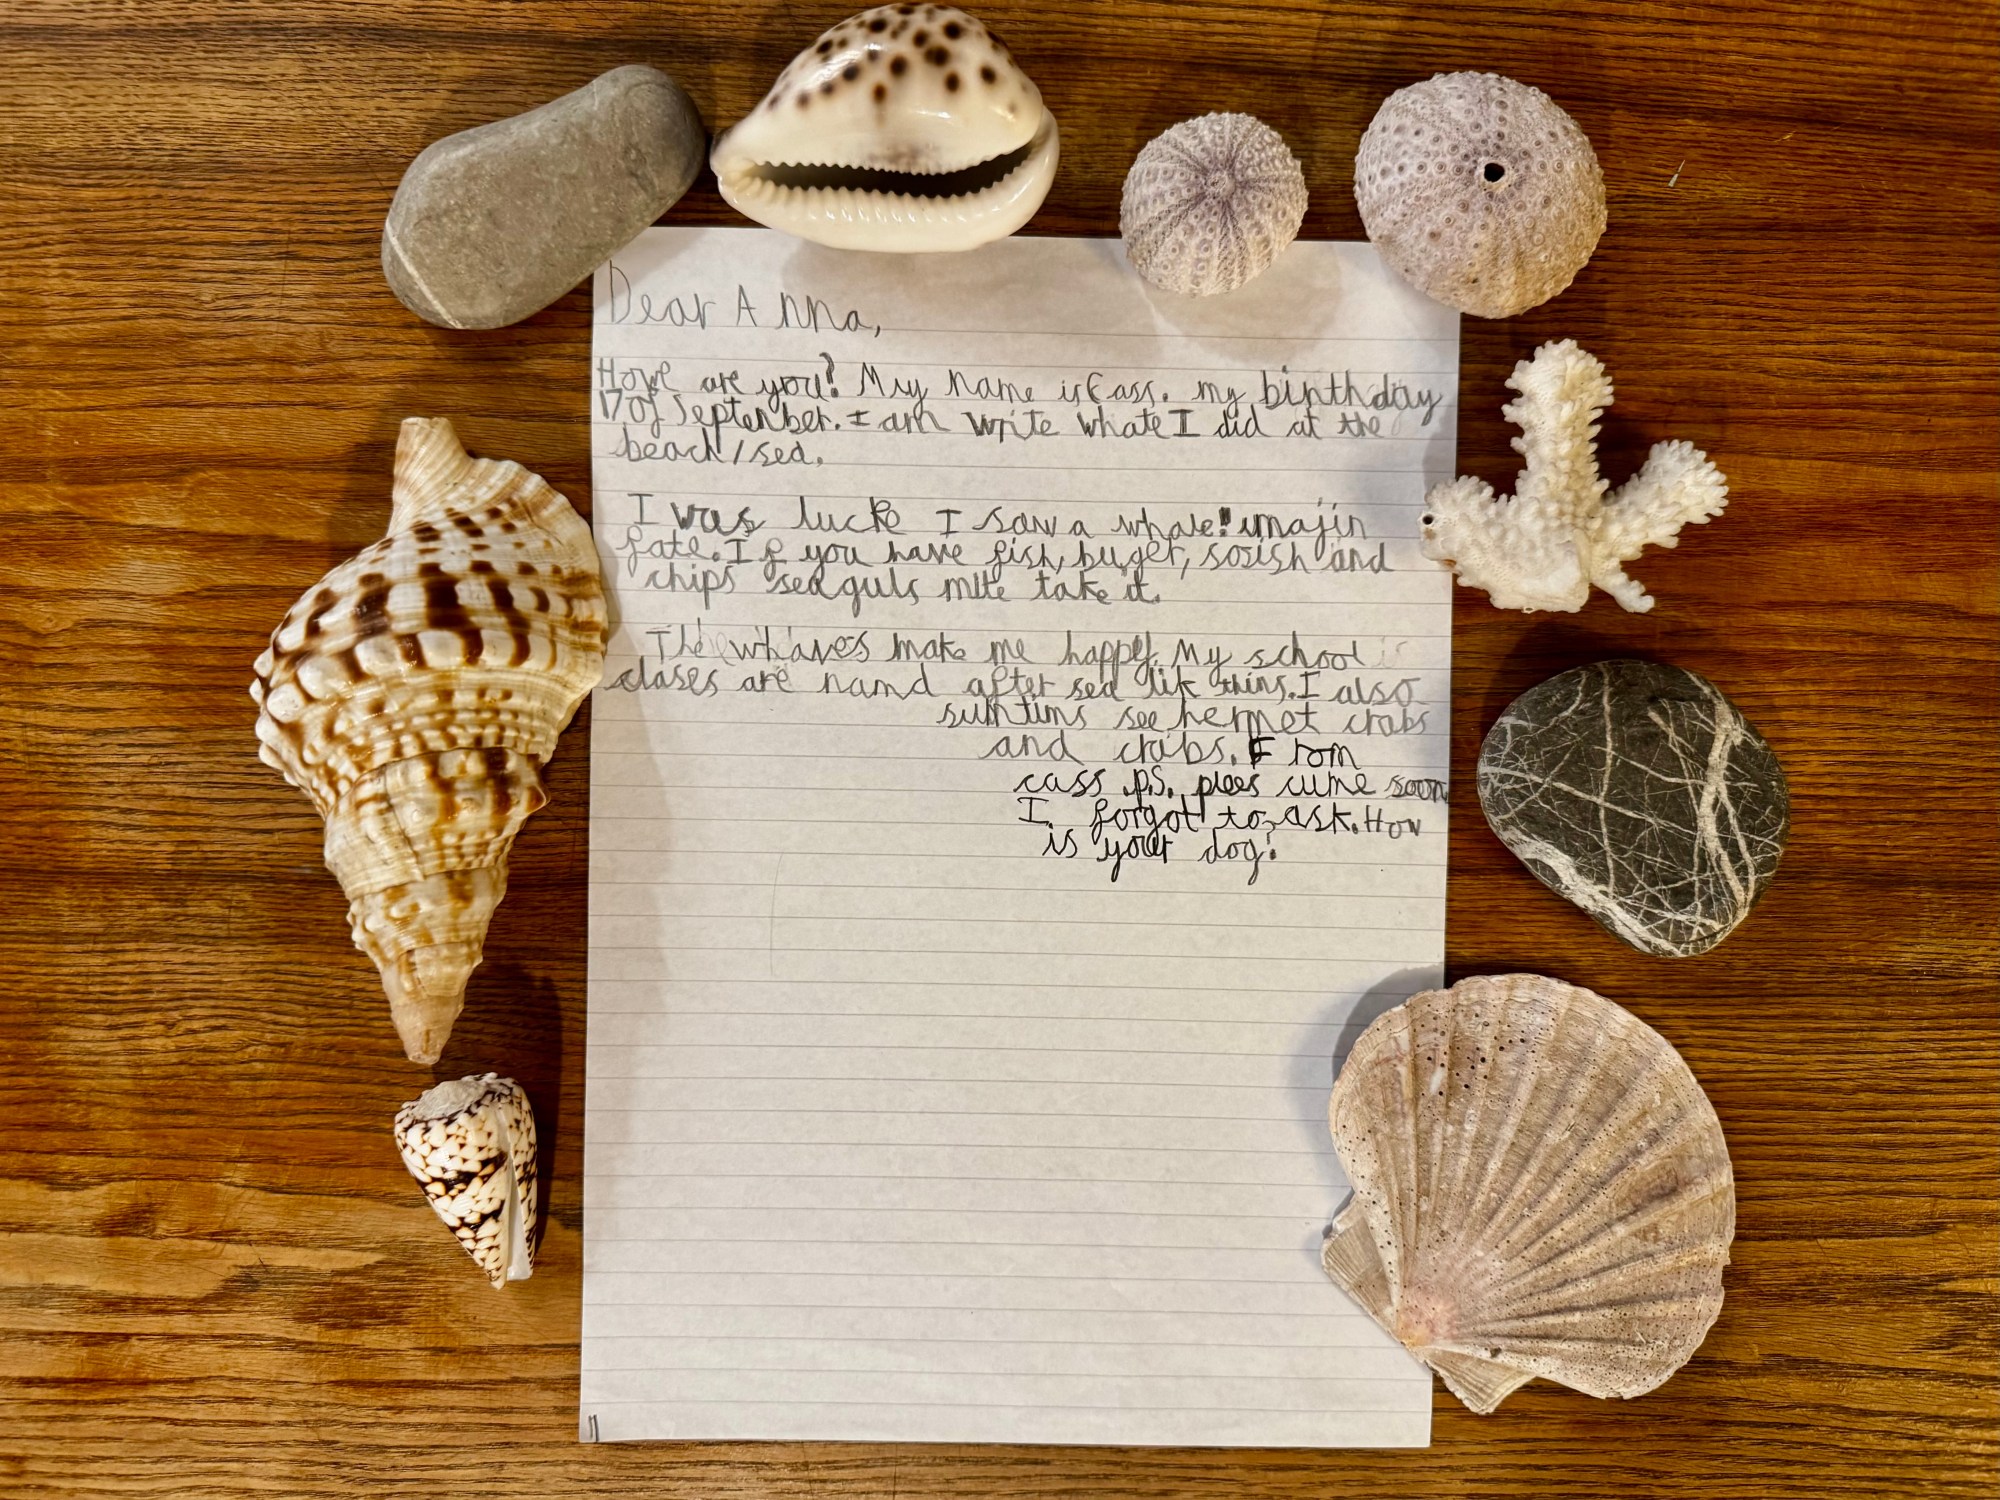 Dear Anna,
Howe are you? My name is Cass. my birthday
17 of September. I am write whate I did at the
beach/sea.
I was lucke I saw a whale! imajin
fate. If you have fish, buger, sosish and
chips seaguls mite take it.
The whaves make me happy. My school is
clases are namd after sea lik thins. I also
sumtims see hermet crabs
and crabs. From
cass .p.s. plees cume soon
I forgot to ask. How
is your dog?